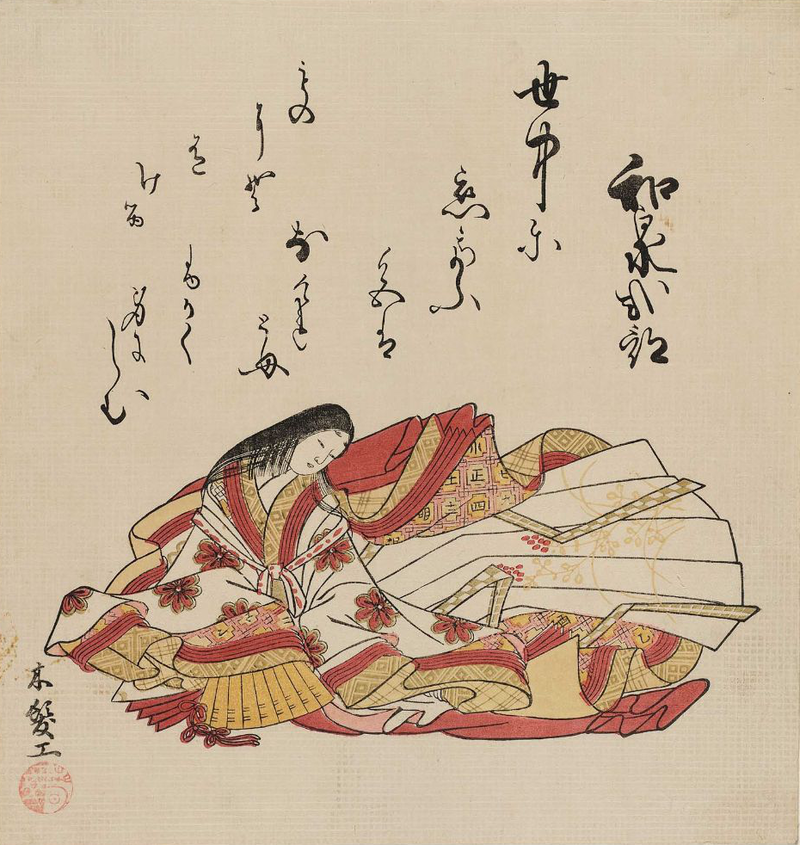 和泉式部
世中に
恋てふ
色は
なけれ
とも
ふかく
身にしむ
もの
にそ
有
ける